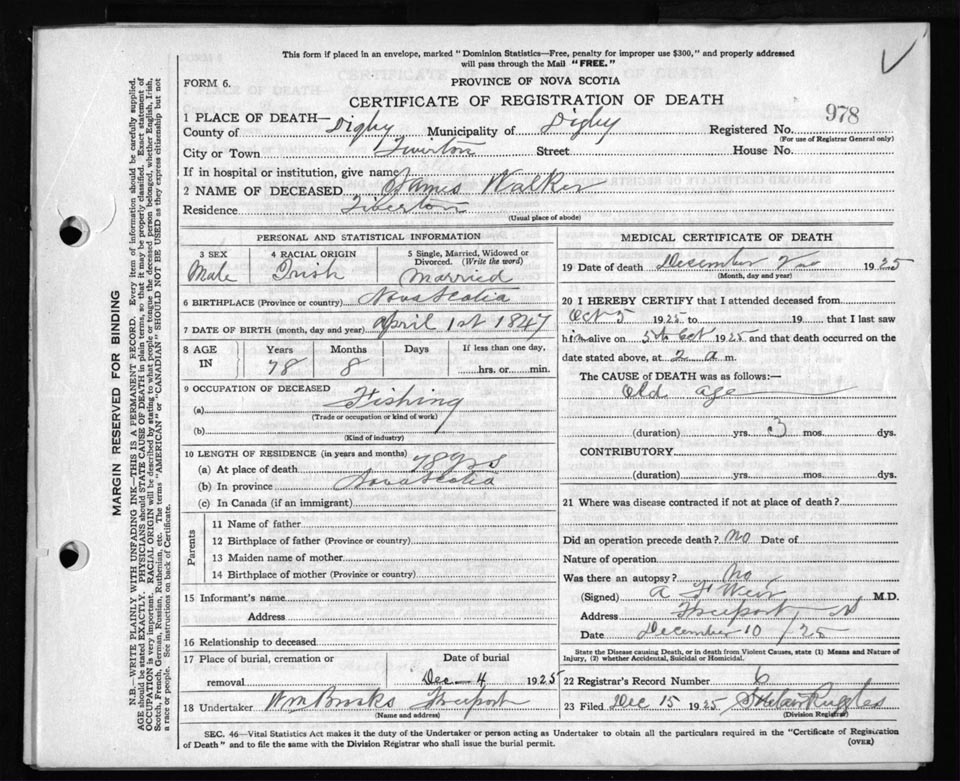 This form if placed in an envelope, marked "Dominion Statistics—Free, penalty for improper use $300," and properly addressed
will pass through the Mail "FREE."
FORM 6.
PROVINCE OF NOVA SCOTIA
CERTIFICATE OF REGISTRATION OF DEATH
1 PLACE OF DEATH—
County of Digby Municipality of Digby Registered No. 978
(For use of Registrar General only)
City or Town Tiverton Street House No.
If in hospital or institution, give name
2 NAME OF DECEASED James Walker
Residence Tiverton
(Usual place of abode)
PERSONAL AND STATISTICAL INFORMATION
3 SEX 4 RACIAL ORIGIN 5 Single, Married, Widowed or
Divorced. (Write the word)
Male Irish Married
6 BIRTHPLACE (Province or country) Nova Scotia
7 DATE OF BIRTH (month, day and year) April 1st 1847
8 AGE IN Years Months Days If less than one day,
78 8 hrs. or min.
9 OCCUPATION OF DECEASED
(a) Fishing
(Trade or occupation or kind of work)
(b)
(Kind of industry)
10 LENGTH OF RESIDENCE (in years and months)
(a) At place of death 78 yrs
(b) In province Nova Scotia
(c) In Canada (if an immigrant)
Parents
11 Name of father
12 Birthplace of father (Province or country)
13 Maiden name of mother
14 Birthplace of mother (Province or country)
15 Informant's name
Address
16 Relationship to deceased
17 Place of burial, cremation or Date of burial
removal Dec 4 1925
18 Undertaker Wm Brooks Freeport
(Name and address)
MEDICAL CERTIFICATE OF DEATH
19 Date of death December 1925
(Month, day and year)
20 I HEREBY CERTIFY that I attended deceased from
Oct 5 1925 to 19 that I last saw
him alive on 5th Oct 1925 and that death occurred on the
date stated above, at 2 a m.
The CAUSE of DEATH was as follows:—
Old age
(duration) yrs. 3 mos. dys.
CONTRIBUTORY
(duration) yrs. mos. dys.
21 Where was disease contracted if not at place of death?
Did an operation precede death? No Date of
Nature of operation
Was there an autopsy? No
(Signed) A F Weir M.D.
Address Freeport NS
Date December 10 / 25
State the Disease causing Death, or in death from Violent Causes, state (1) Means and Nature of
Injury, (2) whether Accidental, Suicidal or Homicidal.
22 Registrar's Record Number 6
23 Filed Dec 15 1925 Ruggles
(Division Registrar)
SEC. 46—Vital Statistics Act makes it the duty of the Undertaker or person acting as Undertaker to obtain all the particulars required in the "Certificate of Registration
of Death" and to file the same with the Division Registrar who shall issue the burial permit. (OVER)
MARGIN RESERVED FOR BINDING
N.B.—WRITE PLAINLY WITH UNFADING INK—THIS IS A PERMANENT RECORD. Every item of information should be carefully supplied.
AGE should be stated EXACTLY. PHYSICIANS should STATE CAUSE OF DEATH in plain terms, so that it may be properly classified. Exact statement of
OCCUPATION is very important. RACIAL ORIGIN will be described by stating to what people or tongue the deceased person belonged, whether English, Irish,
Scotch, French, German, Russian, Ruthenian, etc. The terms "AMERICAN" or "CANADIAN" SHOULD NOT BE USED as they express citizenship but not
a race or people. See instructions on back of Certificate.